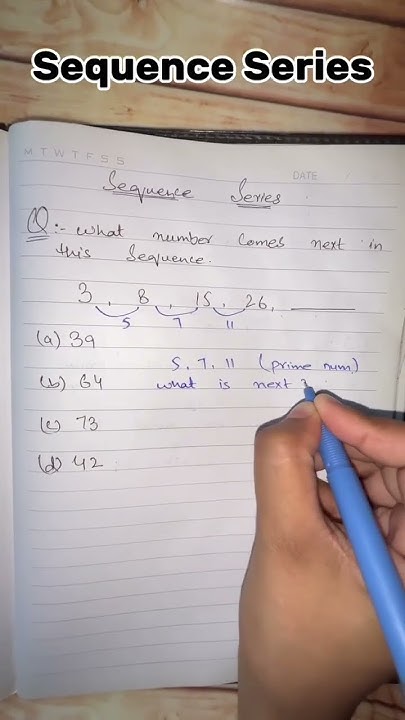 Sequence Series
M T W T F S S
DATE
Sequence Series
Q:- what number comes next in
this sequence.
3, 8, 15, 26, ______
5 7 11
(a) 39
5, 7, 11 (prime num)
(b) 64 what is next ?
(c) 73
(d) 42